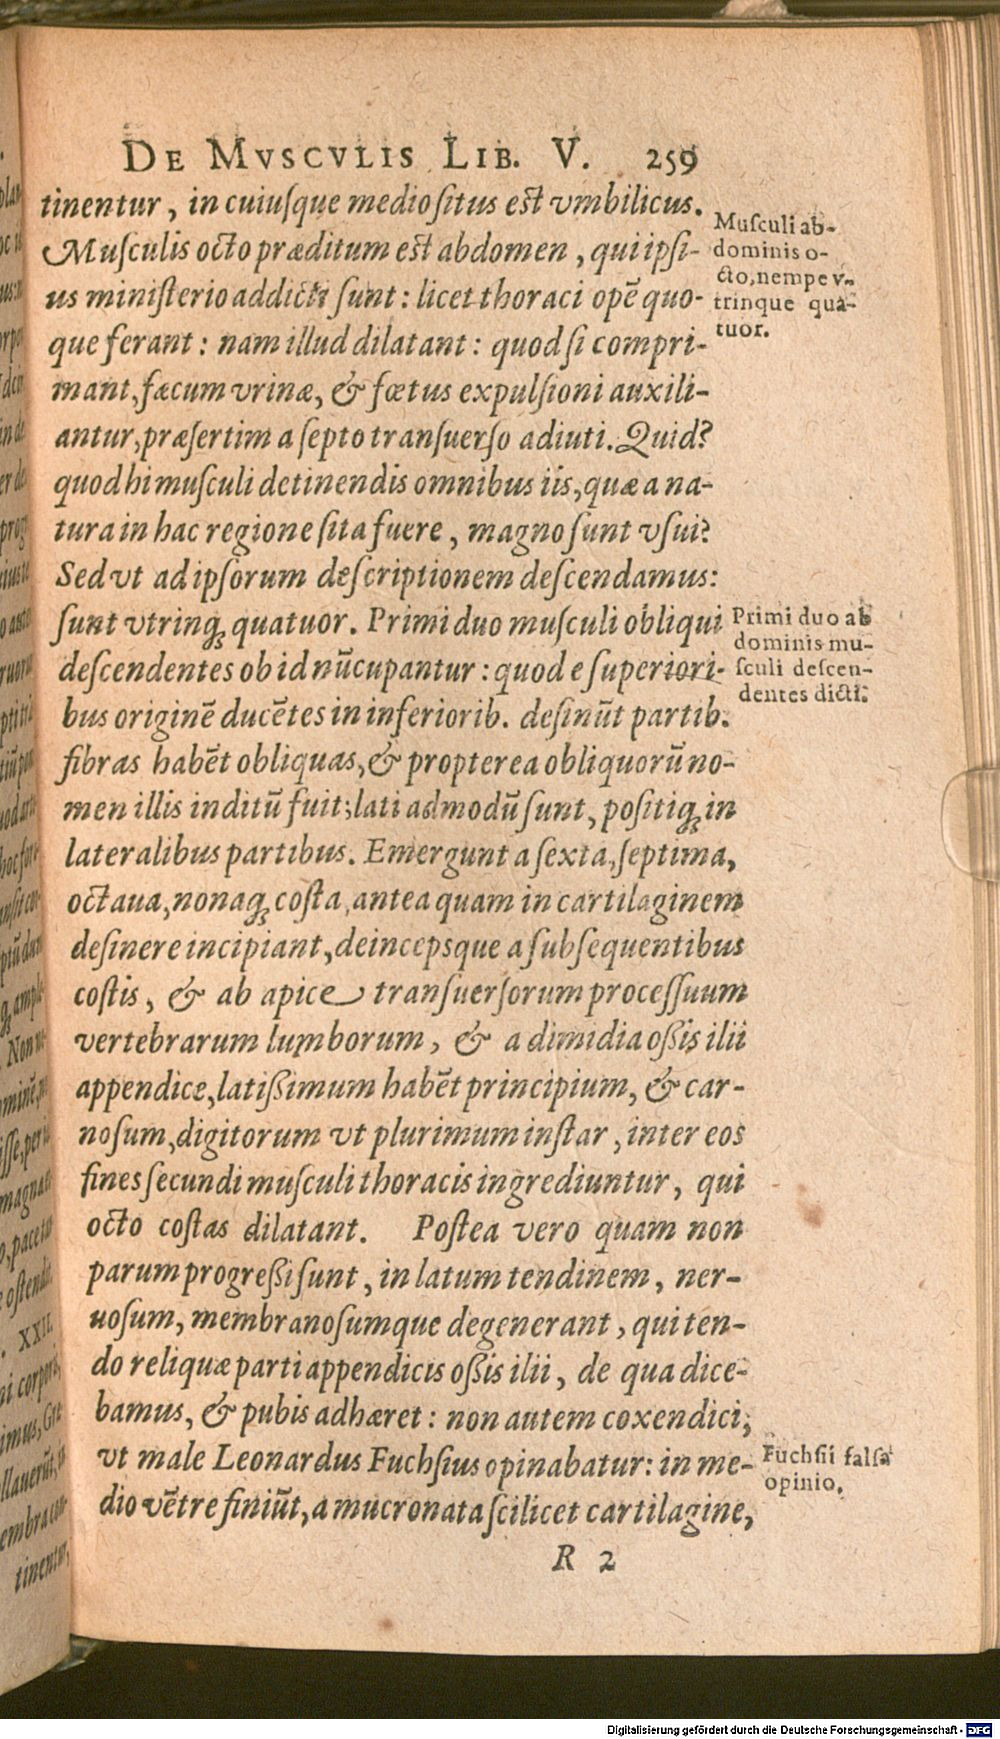 DE MVSCVLIS LIB. V. 259
tinentur, in cuiusque medio situs est vmbilicus.
Musculis octo præditum est abdomen, qui ipsi-
us ministerio addicti sunt: licet thoraci opẽ quo-
que ferant: nam illud dilatant: quod si compri-
mant, fæcum vrinæ, & fœtus expulsioni auxili-
antur, præsertim a septo transuerso adiuti. Quid?
quod hi musculi detinendis omnibus iis, quæ a na-
tura in hac regione sita fuere, magno sunt vsui?
Sed vt ad ipsorum descriptionem descendamus:
sunt vtrinq; quatuor. Primi duo musculi obliqui
descendentes ob id nũcupantur: quod e superiori-
bus originẽ ducẽtes in inferiorib. desinũt partib.
fibras habẽt obliquas, & propterea obliquorũ no-
men illis inditũ fuit; lati admodũ sunt, positiq; in
lateralibus partibus. Emergunt a sexta, septima,
octaua, nonaq; costa, antea quam in cartilaginem
desinere incipiant, deincepsque a subsequentibus
costis, & ab apice transuersorum processuum
vertebrarum lumborum, & a dimidia ossis ilii
appendice, latissimum habẽt principium, & car-
nosum, digitorum vt plurimum instar, inter eos
fines secundi musculi thoracis ingrediuntur, qui
octo costas dilatant. Postea vero quam non
parum progressi sunt, in latum tendinem, ner-
uosum, membranosumque degenerant, qui ten-
do reliquæ parti appendicis ossis ilii, de qua dice-
bamus, & pubis adhæret: non autem coxendici,
vt male Leonardus Fuchsius opinabatur: in me-
dio vẽtre finiũt, a mucronata scilicet cartilagine,
R 2
Musculi ab-
dominis o-
cto, nempe v-
trinque qua-
tuor.
Primi duo ab
dominis mu-
sculi descen-
dentes dicti.
Fuchsii falsa
opinio.
XXII.
tinentur,
Digitalisierung gefördert durch die Deutsche Forschungsgemeinschaft - DFG